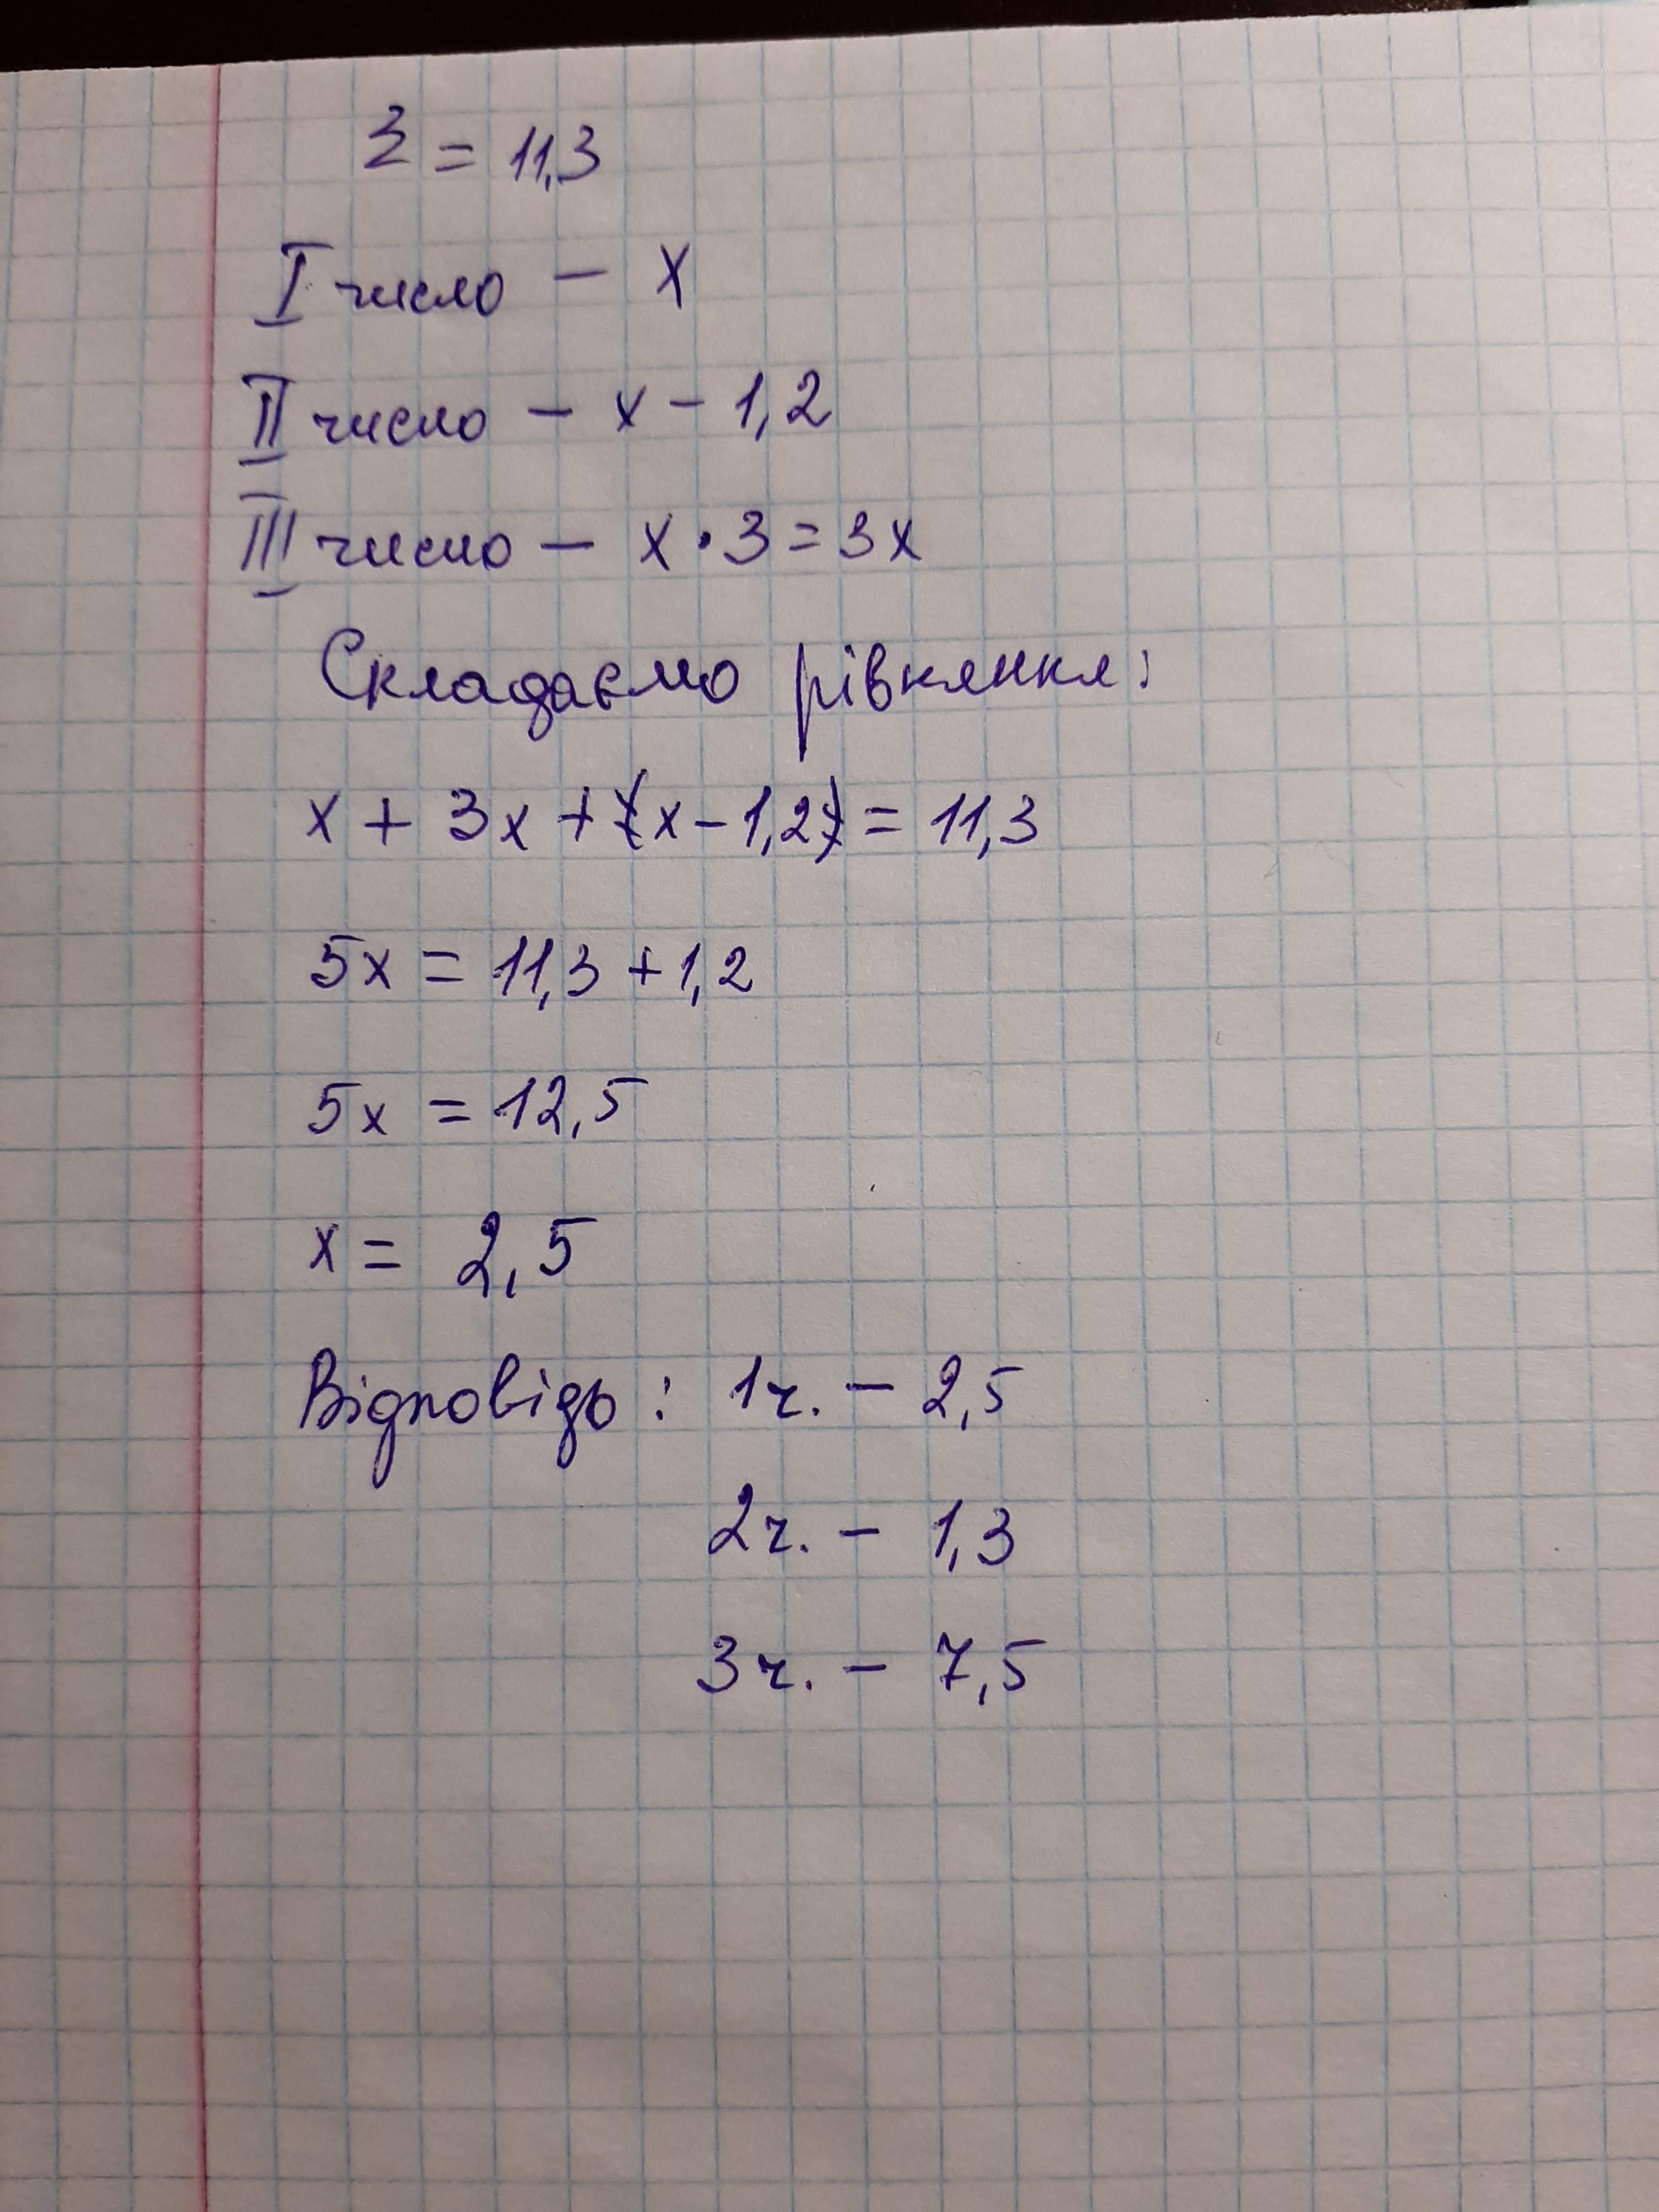 Σ = 11,3
I число – x
II число – x - 1,2
III число – x · 3 = 3x
Складаємо рівняння:
x + 3x + (x - 1,2) = 11,3
5x = 11,3 + 1,2
5x = 12,5
x = 2,5
Відповідь: 1ч. – 2,5
2ч. – 1,3
3ч. – 7,5